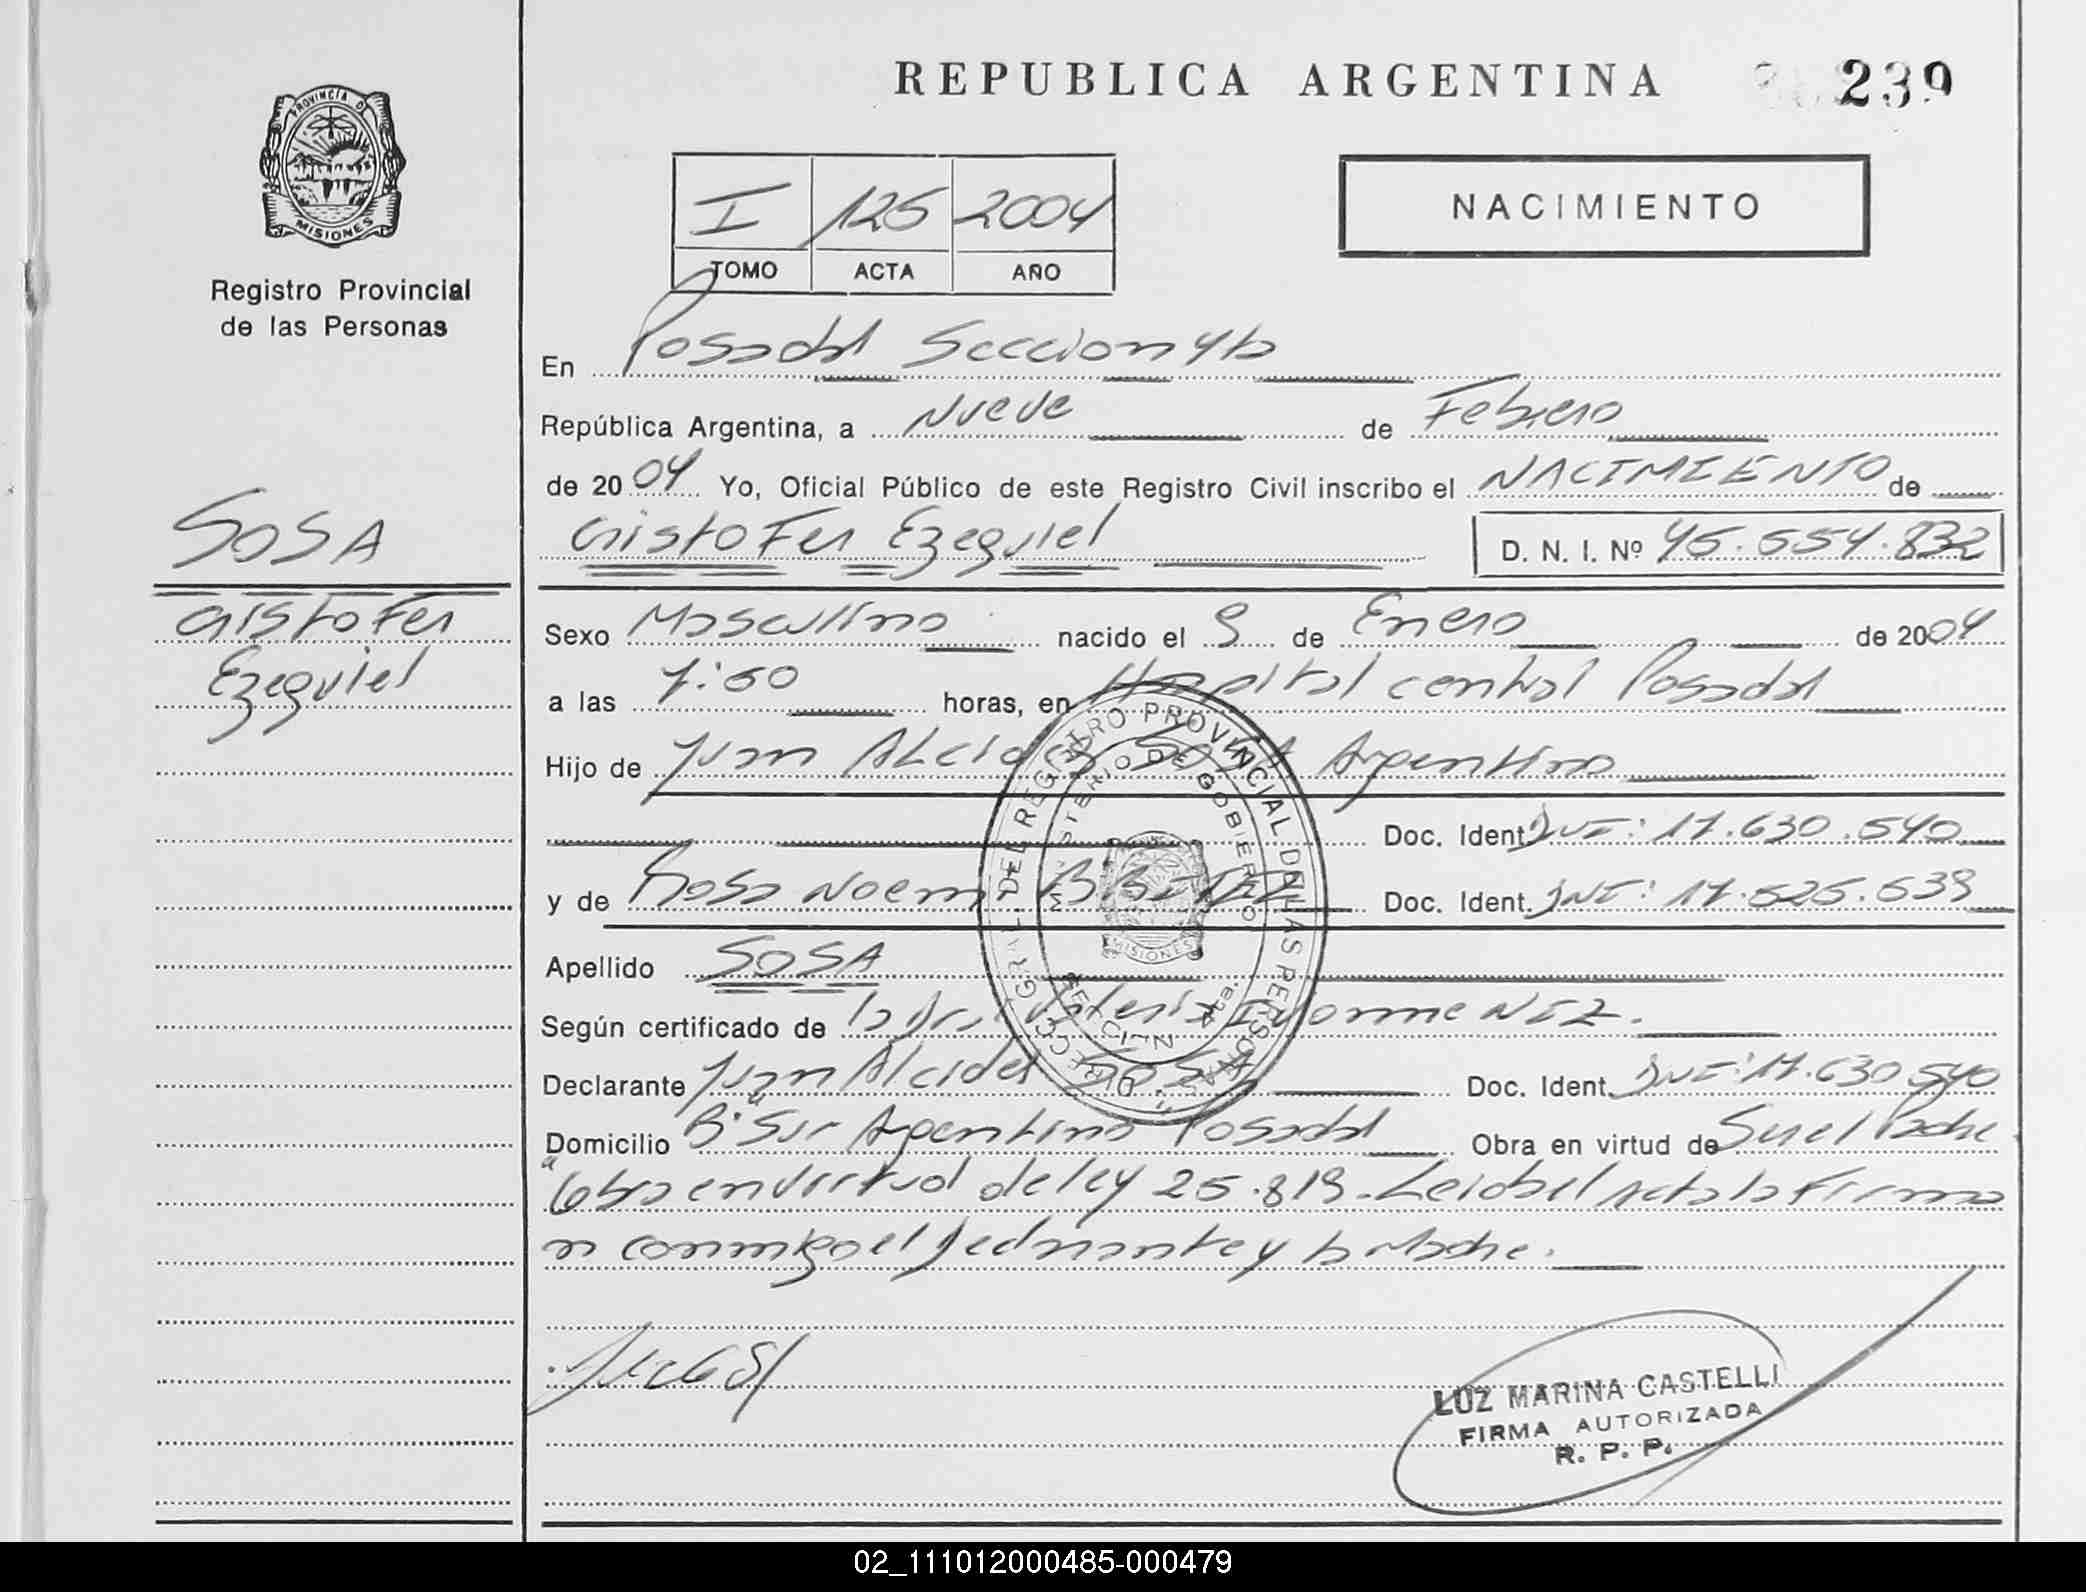 REPUBLICA ARGENTINA 239
PROVINCIA D MISIONES
Registro Provincial
de las Personas
I 125 2004
TOMO ACTA AÑO
NACIMIENTO
En Posadas Seccion 4ta
República Argentina, a Nueve de Febrero
de 2004 Yo, Oficial Público de este Registro Civil inscribo el NACIMIENTO de
Cristofer Ezequiel D. N. I. Nº 45.554.832
SOSA
Cristofer
Ezequiel
Sexo Masculino nacido el 9 de Enero de 2004
a las 7:50 horas, en Hospital central Posadas
Hijo de Juan Alcides SOSA Argentino
Doc. Ident. DNI: 17.630.540
y de Rosa Noemi Doc. Ident. DNI: 17.525.639
Apellido SOSA
Según certificado de la Dra. Informe
Declarante Juan Alcides SOSA Doc. Ident. DNI: 17.630.540
Domicilio Bº Sur Argentino Posadas Obra en virtud de Ser el Padre
"Obra en virtud de ley 25.819. Leida el Acta la Firma
n conmigo el Declarante y la Madre.
DIRECC. GRAL. DEL REGISTRO PROVINCIAL DE LAS PERSONAS
MINISTERIO DE GOBIERNO
MISIONES
SECCION 4ta.
LUZ MARINA CASTELLI
FIRMA AUTORIZADA
R. P. P.
02_111012000485-000479